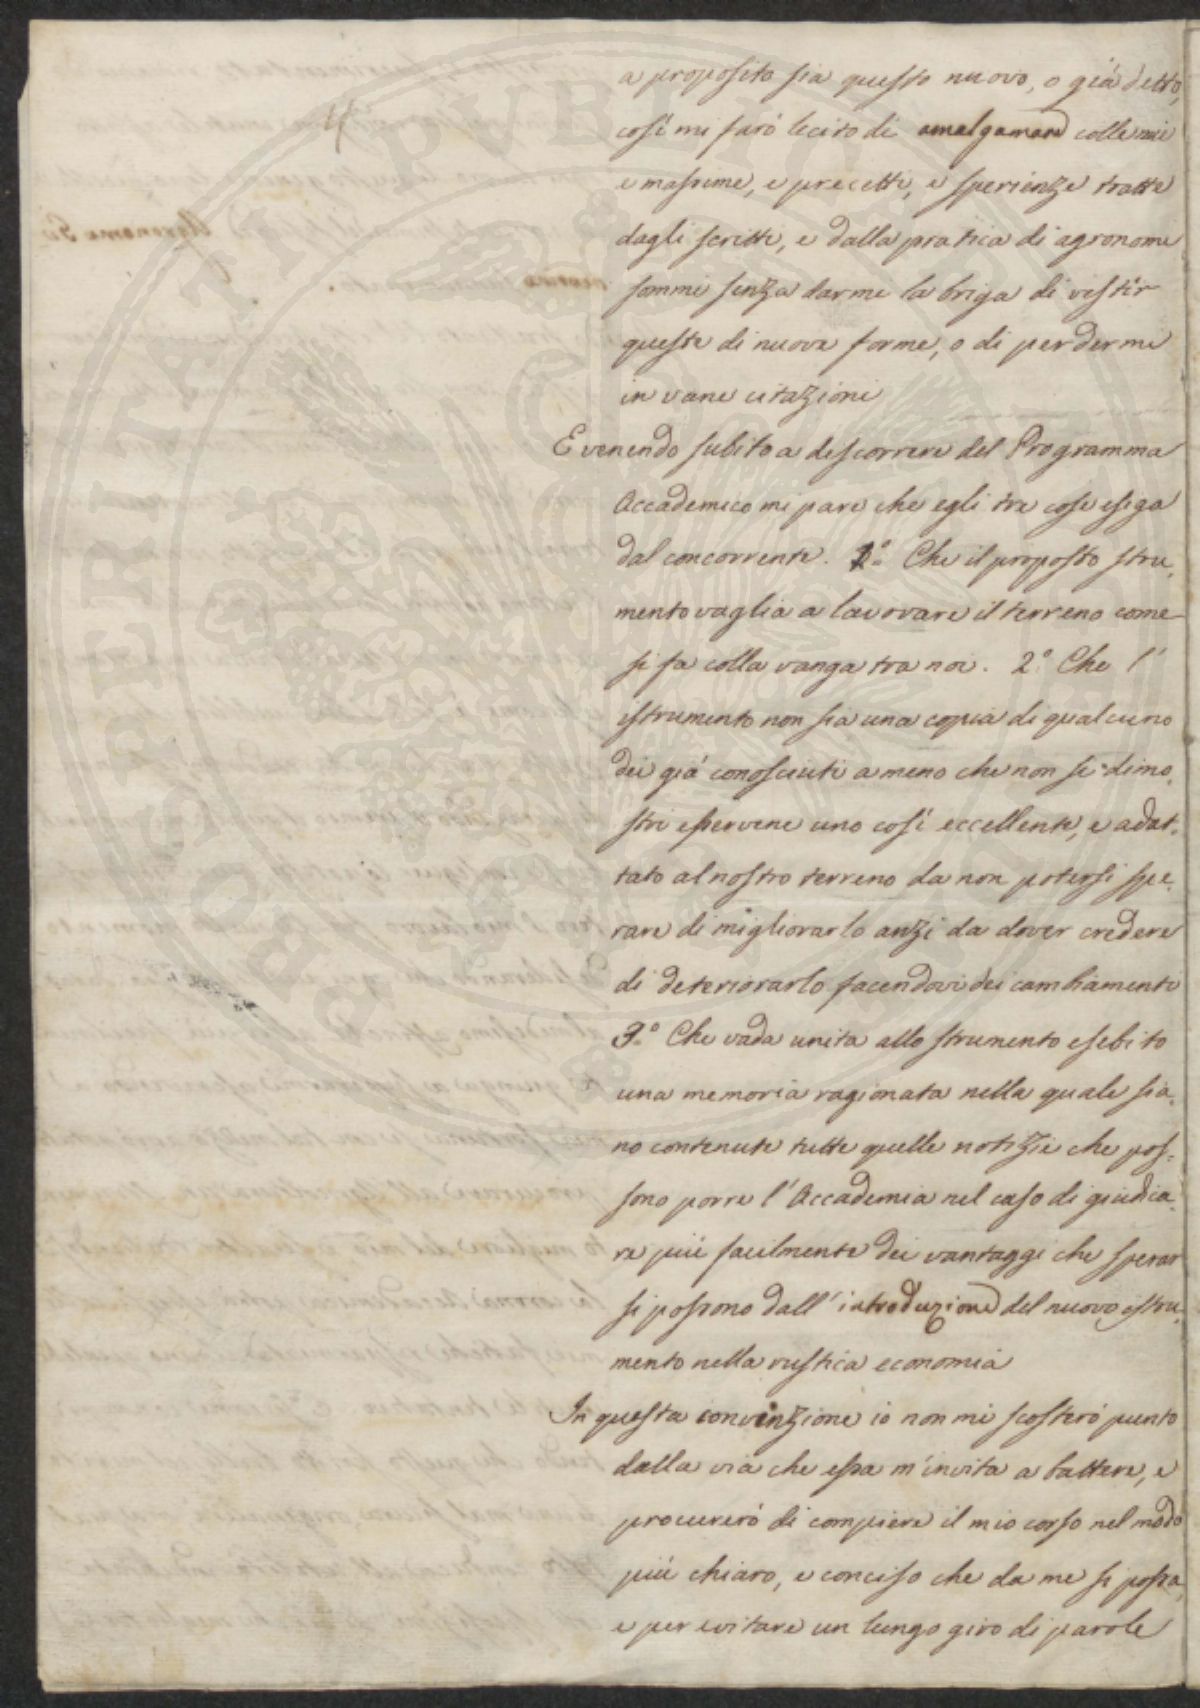 4
a proposito sia questo nuovo, o già detto,
così mi farò lecito di amalgamare colle mie
e massime, e precetti, e sperienze tratte
dagli scritti, e dalla pratica di agronomi
sommi senza darmi la briga di vestir
queste di nuove forme, o di perdermi
in vane citazioni
E venendo subito a discorrere del Programma
Accademico mi pare che egli tre cose esiga
dal concorrente. 1.º Che il proposto stru-
mento vaglia a lavorare il terreno come
si fa colla vanga tra noi. 2.º Che l'
istrumento non sia una copia di qualcuno
dei già conosciuti a meno che non si dimo-
stri esservene uno così eccellente, e adat-
tato al nostro terreno da non potersi spe-
rare di migliorarlo anzi da dover credere
di deteriorarlo facendovi dei cambiamenti
3.º Che vada unita allo strumento esebito
una memoria ragionata nella quale sia-
no contenute tutte quelle notizie che pos-
sono porre l'Accademia nel caso di giudica-
re più facilmente dei vantaggi che sperar
si possono dall'introduzione del nuovo istru-
mento nella rustica economia
In questa convinzione io non mi scosterò punto
dalla via che essa m'invita a battere, e
procurerò di compiere il mio corso nel modo
più chiaro, e conciso che da me si possa,
e per evitare un lungo giro di parole